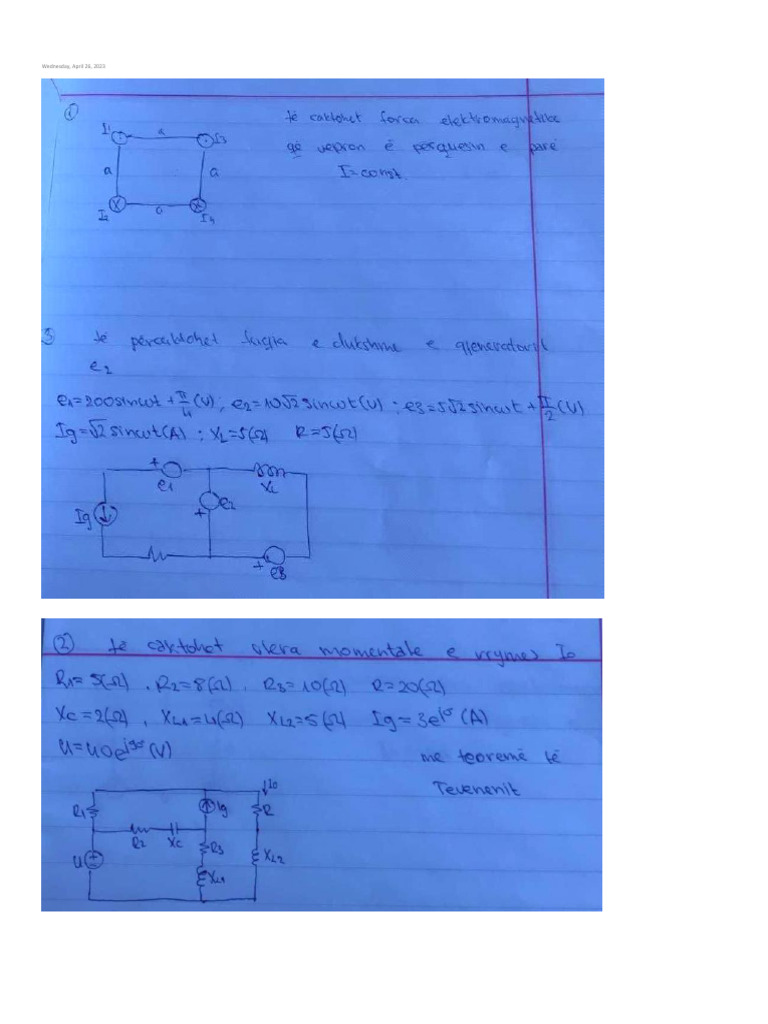 Wednesday, April 26, 2023
1
të caktohet forca elektromagnetike
që vepron ë përquesin e parë
I=const.
I1
a
I3
a
a
I2
a
I4
3 të përcaktohet fuqia e dukshme e gjeneratorit
e2
e1=200sinωt+π/4(V); e2=10√2sinωt(V); e3=5√2sinωt+π/2(V)
Ig=√2sinωt(A); XL=5(Ω) R=5(Ω)
+
e1
XL
Ig
e2
+
+
e3
2 të caktohet vlera momentale e rrymes Io
R1=5(Ω), R2=8(Ω), R3=10(Ω) R=20(Ω)
XC=2(Ω), XL1=4(Ω) XL2=5(Ω) Ig=3e^j0(A)
U=40e^j90(V)
me teoremë të
Tevenenit
Io
R1
Ig
R
R2
XC
R3
U
XL1
XL2